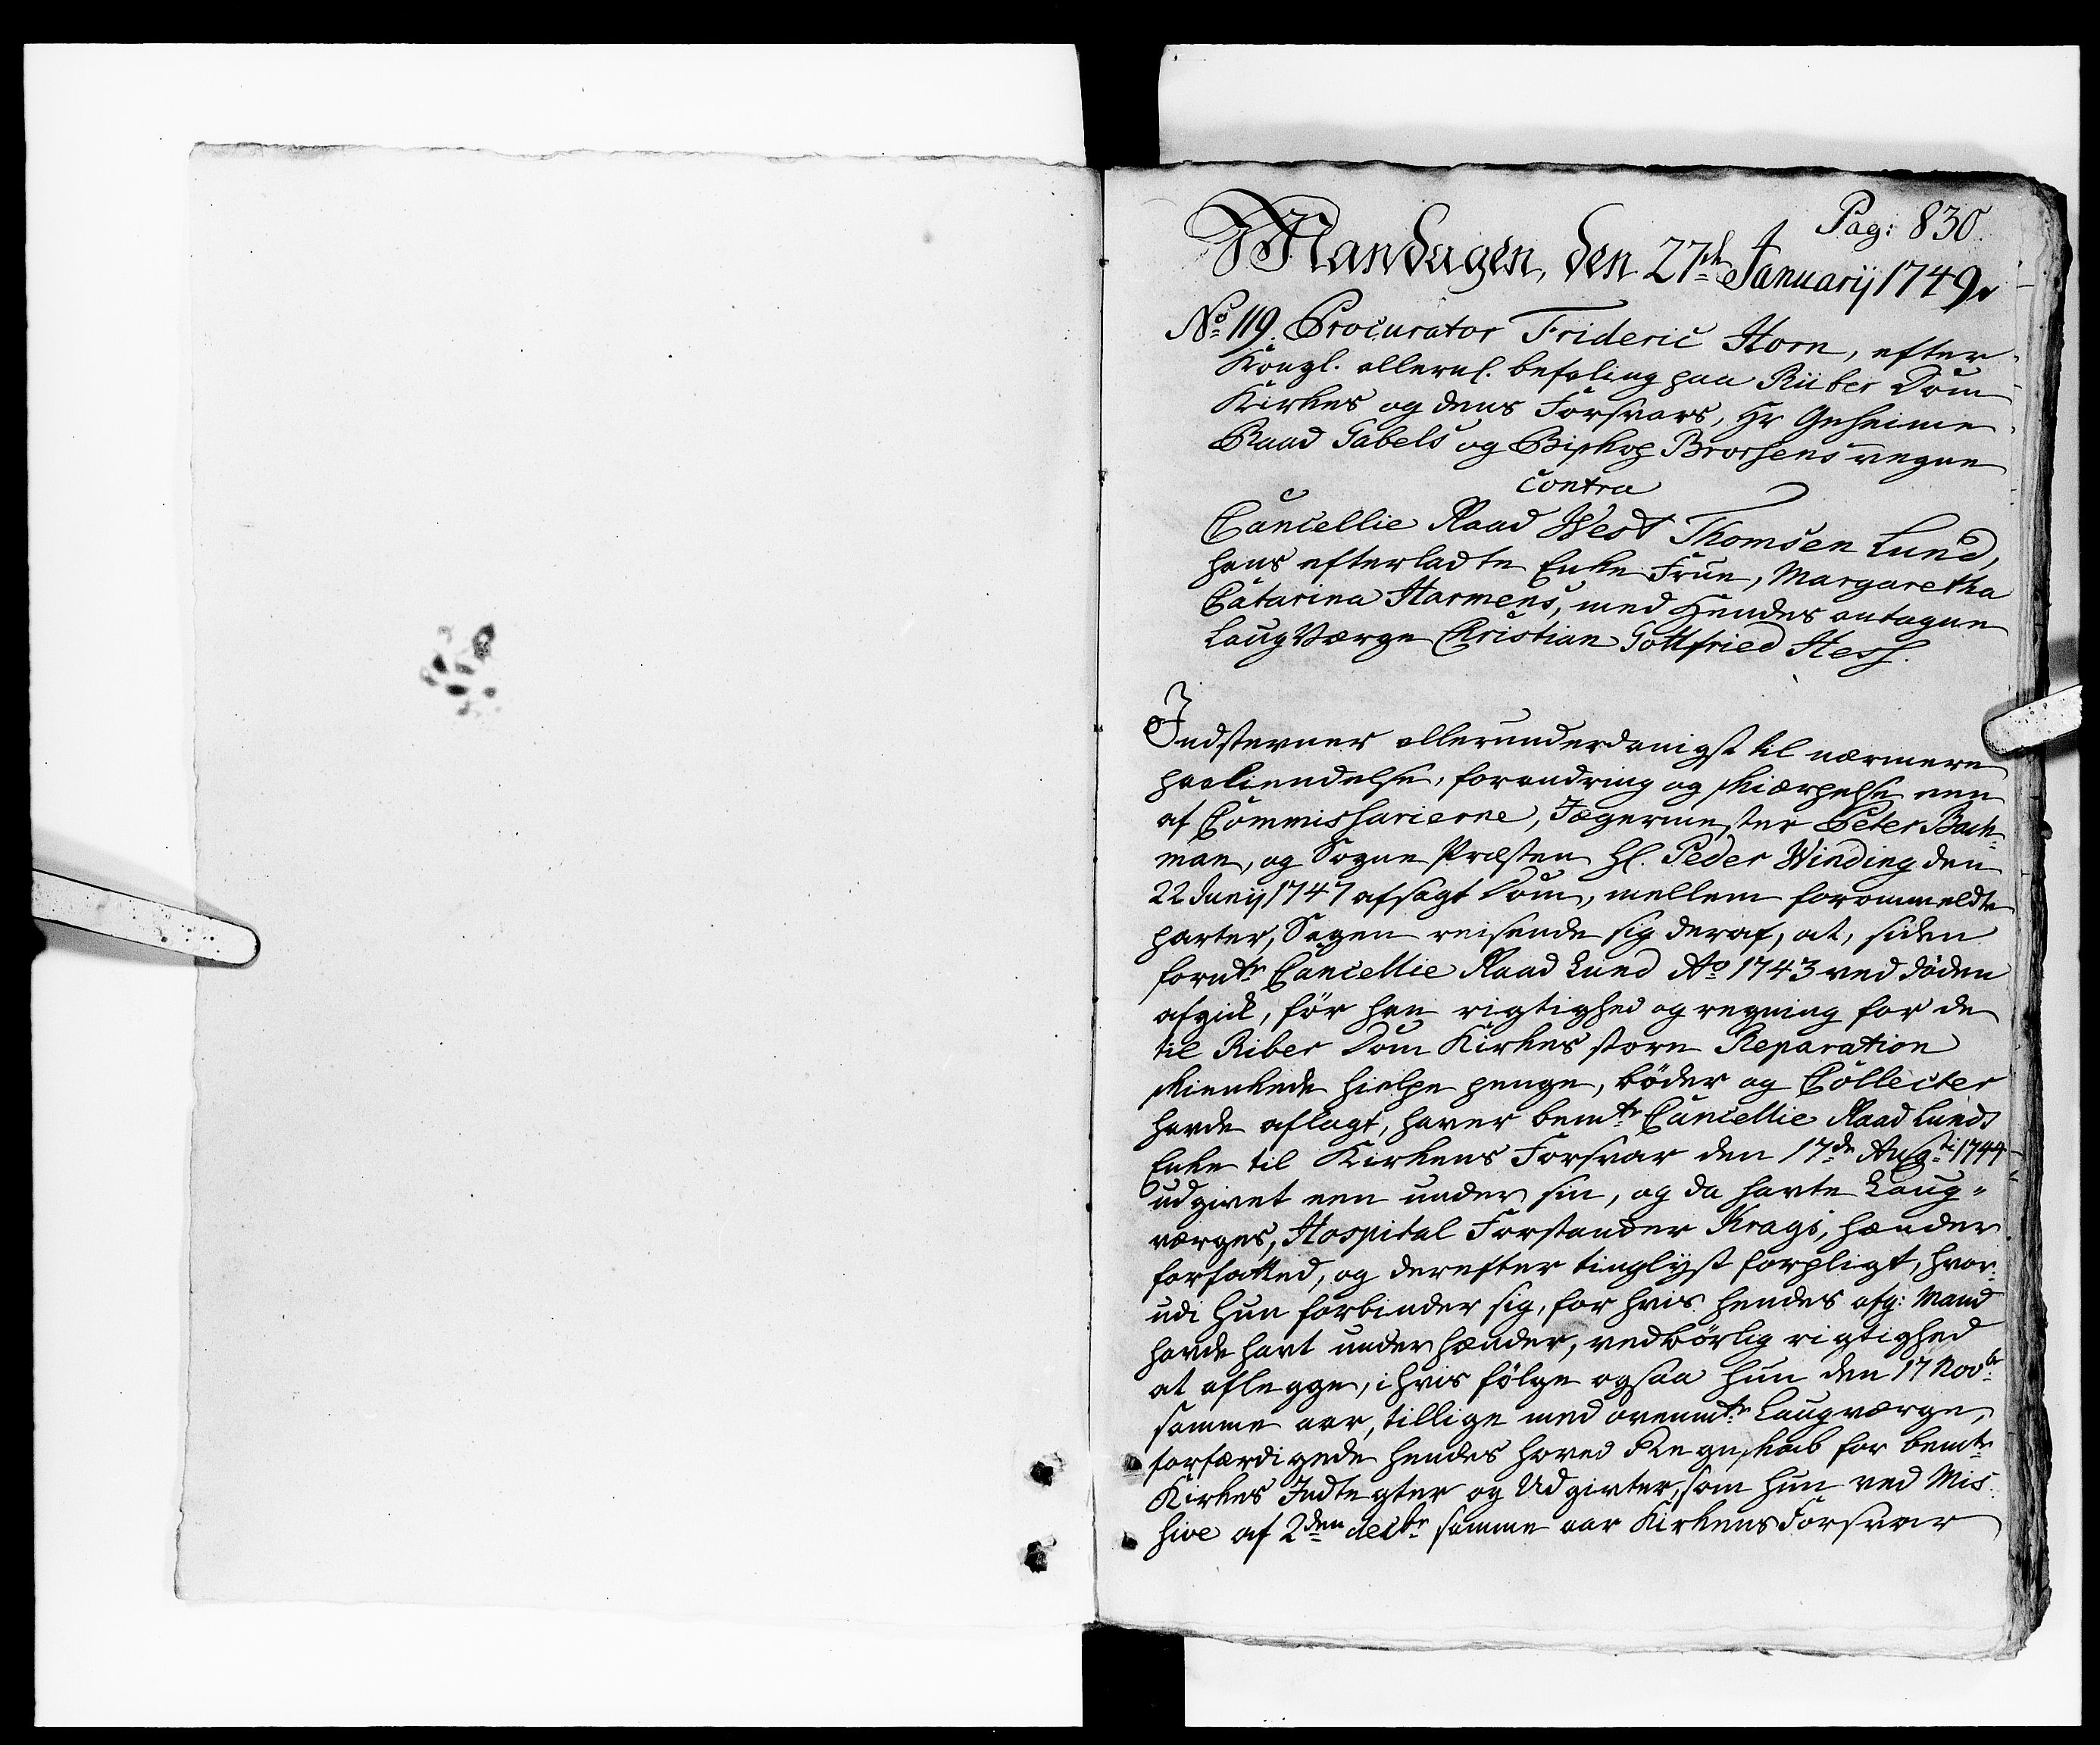 Pag: 830.
Mandagen, den 27de Januarij 1749.
No 119. Procurator Frideric Horn, efter
Kongl. allern. befaling paa Riiber Dom
Kirkes og dens Forsvars, Hr Geheime
Raad Gabels og Biskop Brorsens vegne
contra
Cancellie Raad West Thomsen Lund,
hans efterladte Enke Frue, Margaretha
Catarina Harmens, med Hendes antagne
Laug Værge Christian Gottfried Hess.
Indstevner allerunderdanigst til nærmere
paakiendelse, forandring og skiærpelse een
af Commissarierne, Jægermester Peter Bach-
man, og Sogne Præsten Hl. Peder Winding den
22 Junij 1747 afsagt Dom, mellem forommeldte
parter, Sagen reisende sig deraf, at, siden
fornte Cancellie Raad Lund Ao 1743 ved döden
afgick, för han rigtighed og regning for de
til Riber Dom Kirkes store Reparation
skienkede hielpe penge, böder og Collecter
havde aflagt, haver bemte Cancellie Raad Lunds
Enke til Kirkens Forsvar den 17de Augti 1744
udgivet een under sin, og da havte Laug-
værges, Hospital Forstander Krags, hænder
forfatted, og derefter tinglyst forpligt, hvor-
udi hun forbinder sig, for hvis hendes afg: Mand
havde havt under hænder, vedbörlig rigtighed
at aflegge, i hvis fölge ogsaa hun den 17 Novbr
samme aar, tillige med ovenmte Laugværge,
forfærdigede hendes hoved Regnskab for bemte
Kirkes Indtegter og Udgivter, som hun ved Mis-
sive af 2den decbr samme aar Kirkens Forsvar